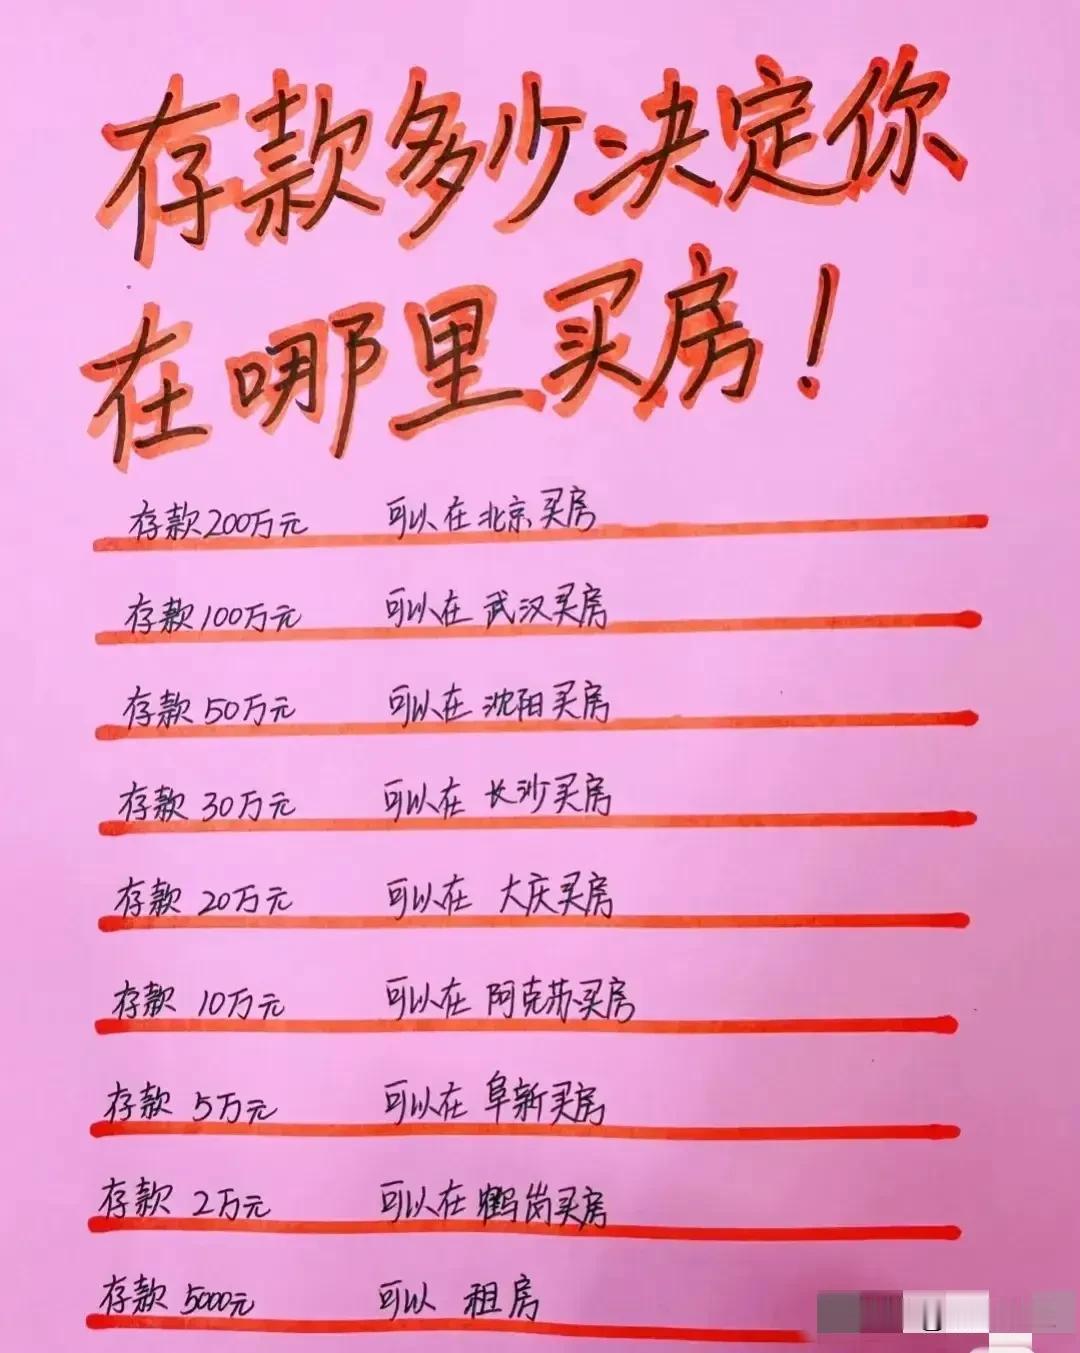 存款多少决定你
在哪里买房！
存款200万元 可以在北京买房
存款100万元 可以在武汉买房
存款50万元 可以在沈阳买房
存款30万元 可以在长沙买房
存款20万元 可以在大庆买房
存款10万元 可以在阿克苏买房
存款5万元 可以在阜新买房
存款2万元 可以在鹤岗买房
存款5000元 可以租房